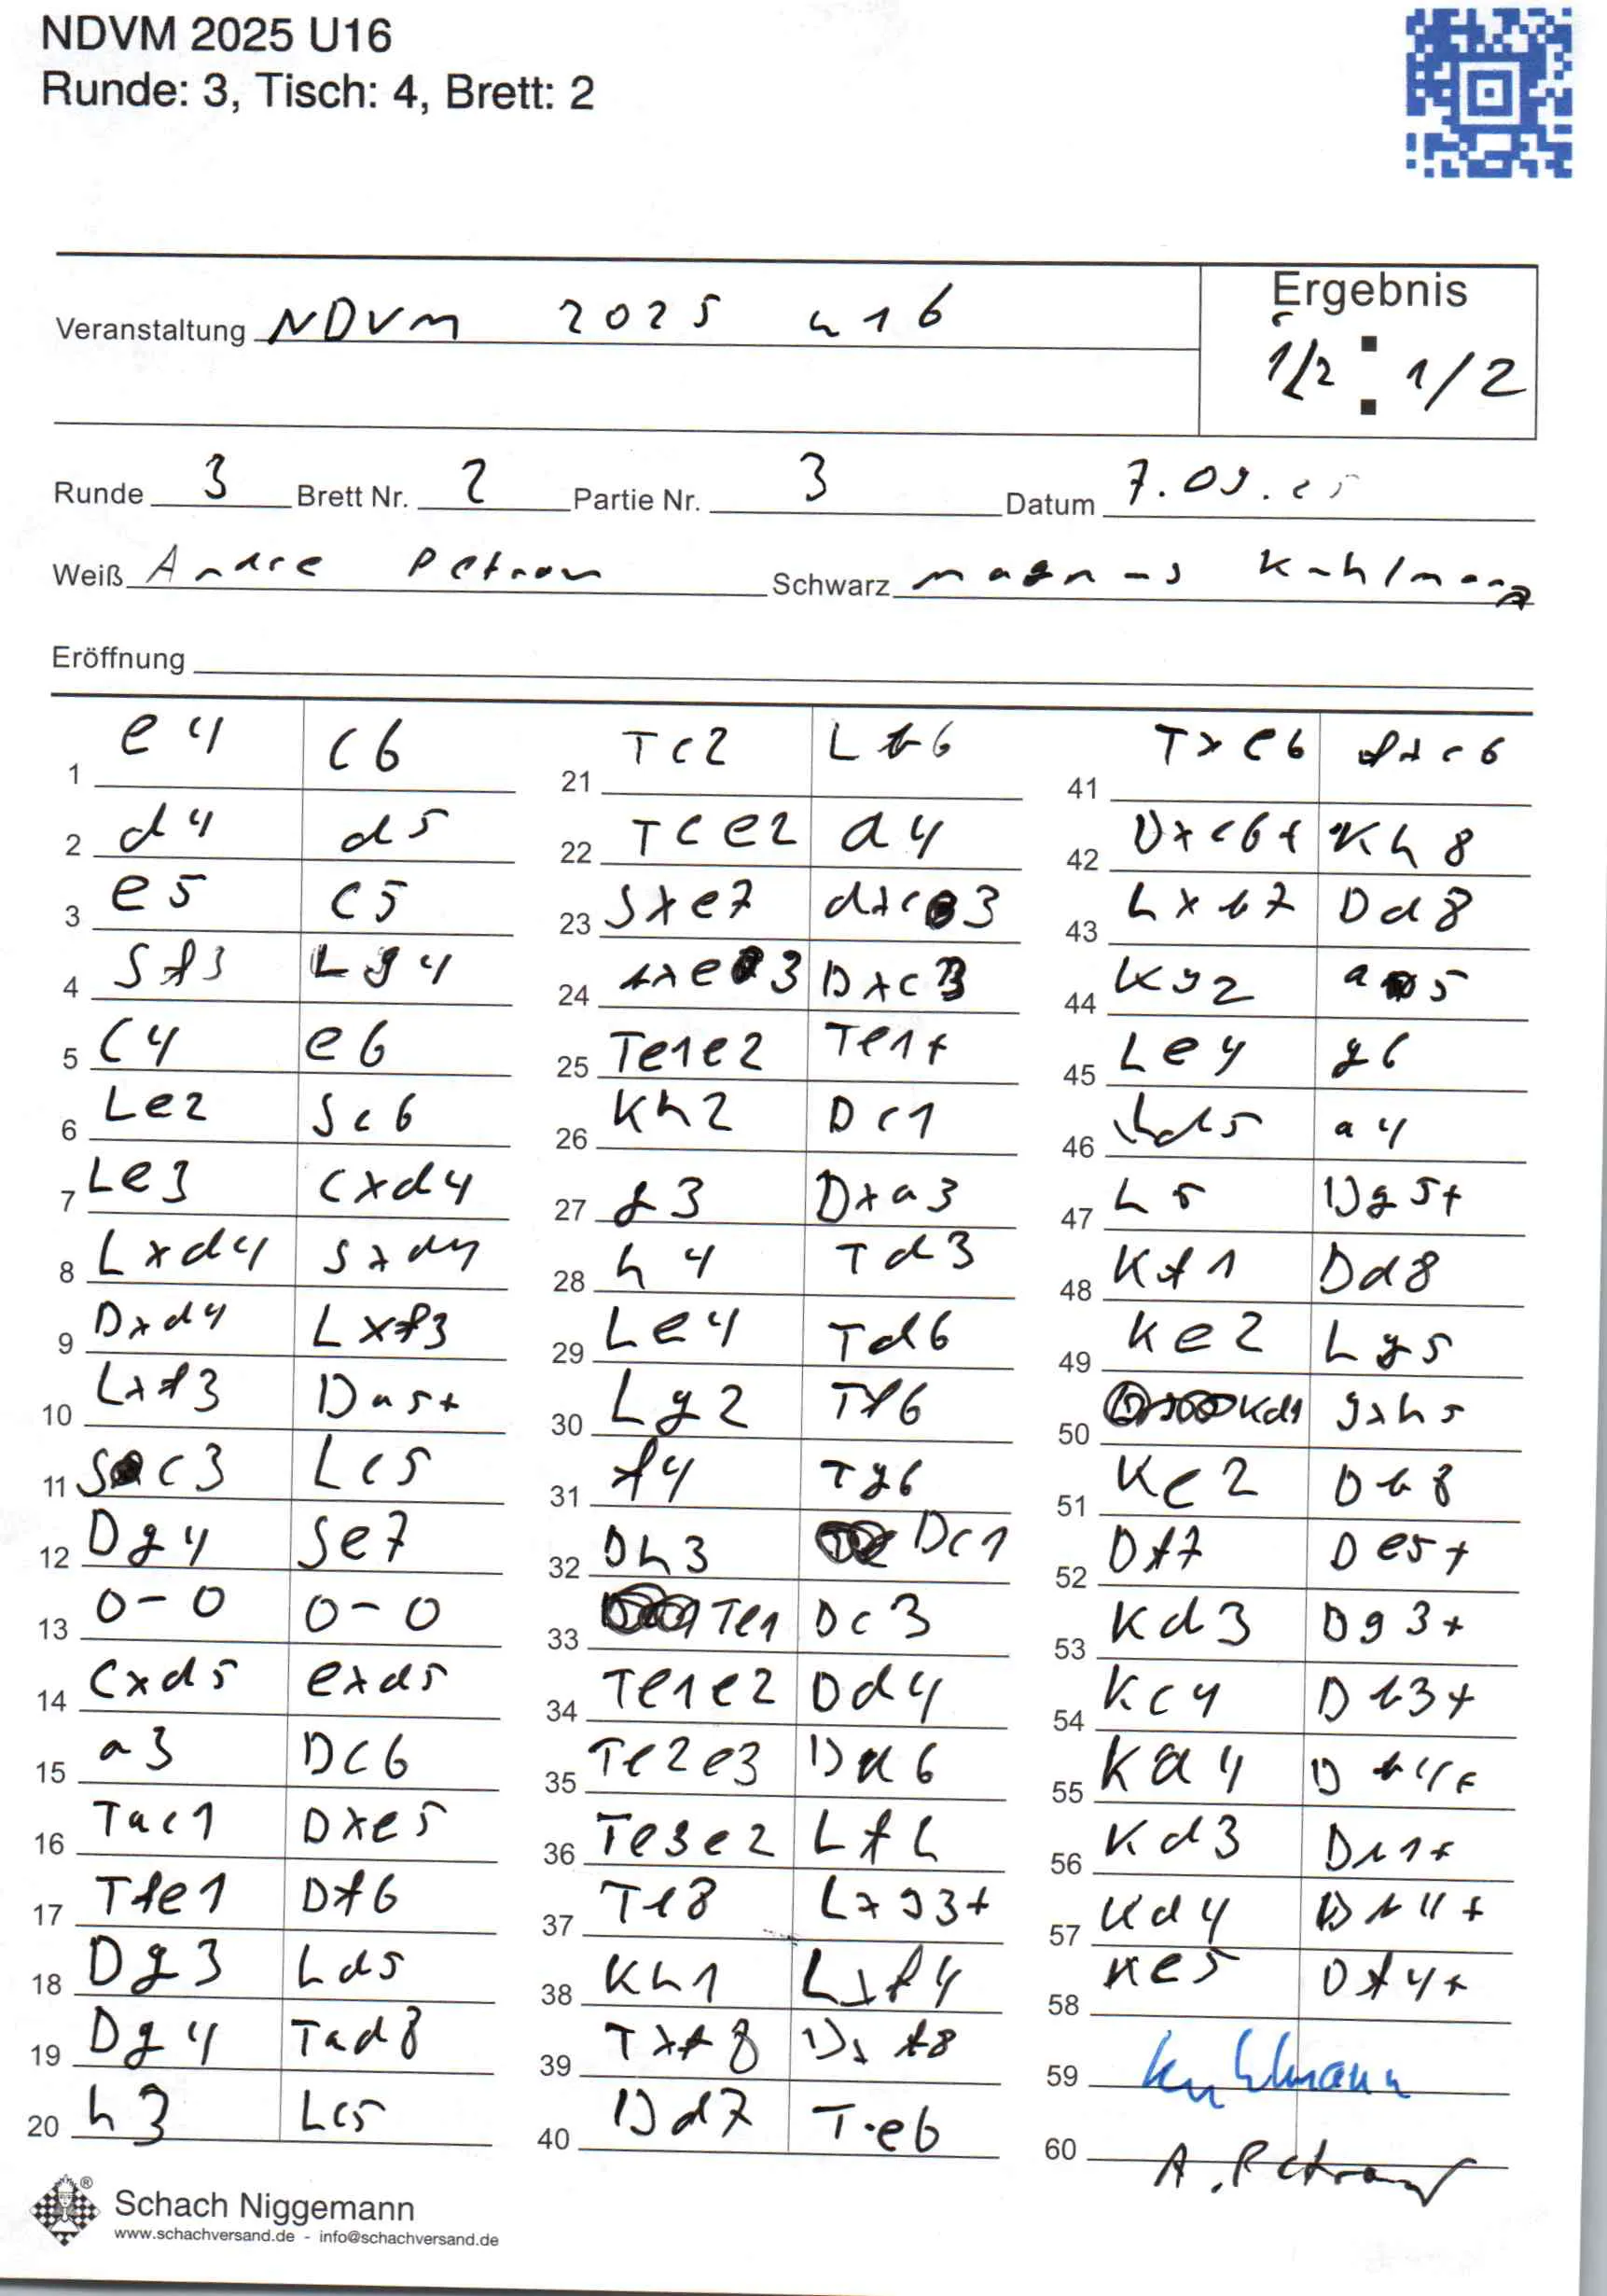 NDVM 2025 U16
Runde: 3, Tisch: 4, Brett: 2
Ergebnis
Veranstaltung NDVM 2025 u16
1/2 : 1/2
Runde 3 Brett Nr. 2 Partie Nr. 3 Datum 7.09.25
Weiß Andre Petrov Schwarz Magnus Kuhlmann
Eröffnung
1 e4 c6
2 d4 d5
3 e5 c5
4 Sf3 Lg4
5 c4 e6
6 Le2 Sc6
7 Le3 cxd4
8 Lxd4 Sxd4
9 Dxd4 Lxf3
10 Lxf3 Da5+
11 Sc3 Lc5
12 Dg4 Se7
13 0-0 0-0
14 cxd5 exd5
15 a3 Dc6
16 Tac1 Dxe5
17 Tfe1 Df6
18 Dg3 Ld5
19 Dg4 Tad8
20 h3 Lc5
21 Tc2 Lb6
22 Tce2 d4
23 Sxe7 dxc3
24 bxe3 Dxc3
25 Te1e2 Te1+
26 Kh2 Dc1
27 g3 Dxa3
28 h4 Td3
29 Le4 Td6
30 Lg2 Tf6
31 f4 Tg6
32 Dh3 Dc1
33 Te1 Dc3
34 Te1e2 Dd4
35 Te2e3 Dd6
36 Te3e2 Lf2
37 Te8 Lxg3+
38 Kh1 Lxf4
39 Txf8 Dxf8
40 Dd7 Te6
41 Txe6 fxe6
42 Dxe6+ Kh8
43 Lxb7 Dd8
44 Kg2 a5
45 Le4 g6
46 Ld5 a4
47 h5 Dg5+
48 Kf1 Dd8
49 Ke2 Lg5
50 Kd1 gxh5
51 Ke2 Db8
52 Df7 De5+
53 Kd3 Dg3+
54 Kc4 Db3+
55 Kd4 Db4+
56 Kd3 Db1+
57 Kd4 Db4+
58 Ke5 Df4+
59 Kuhlmann
60 A. Petrov
Schach Niggemann
www.schachversand.de - info@schachversand.de